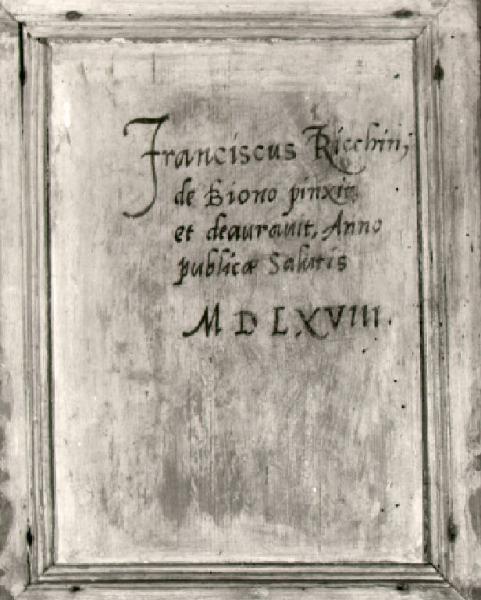 Franciscus Ricchin;
de Biono pinxit,
et deaurauit, Anno
publicæ Salutis
MDLXVIII.